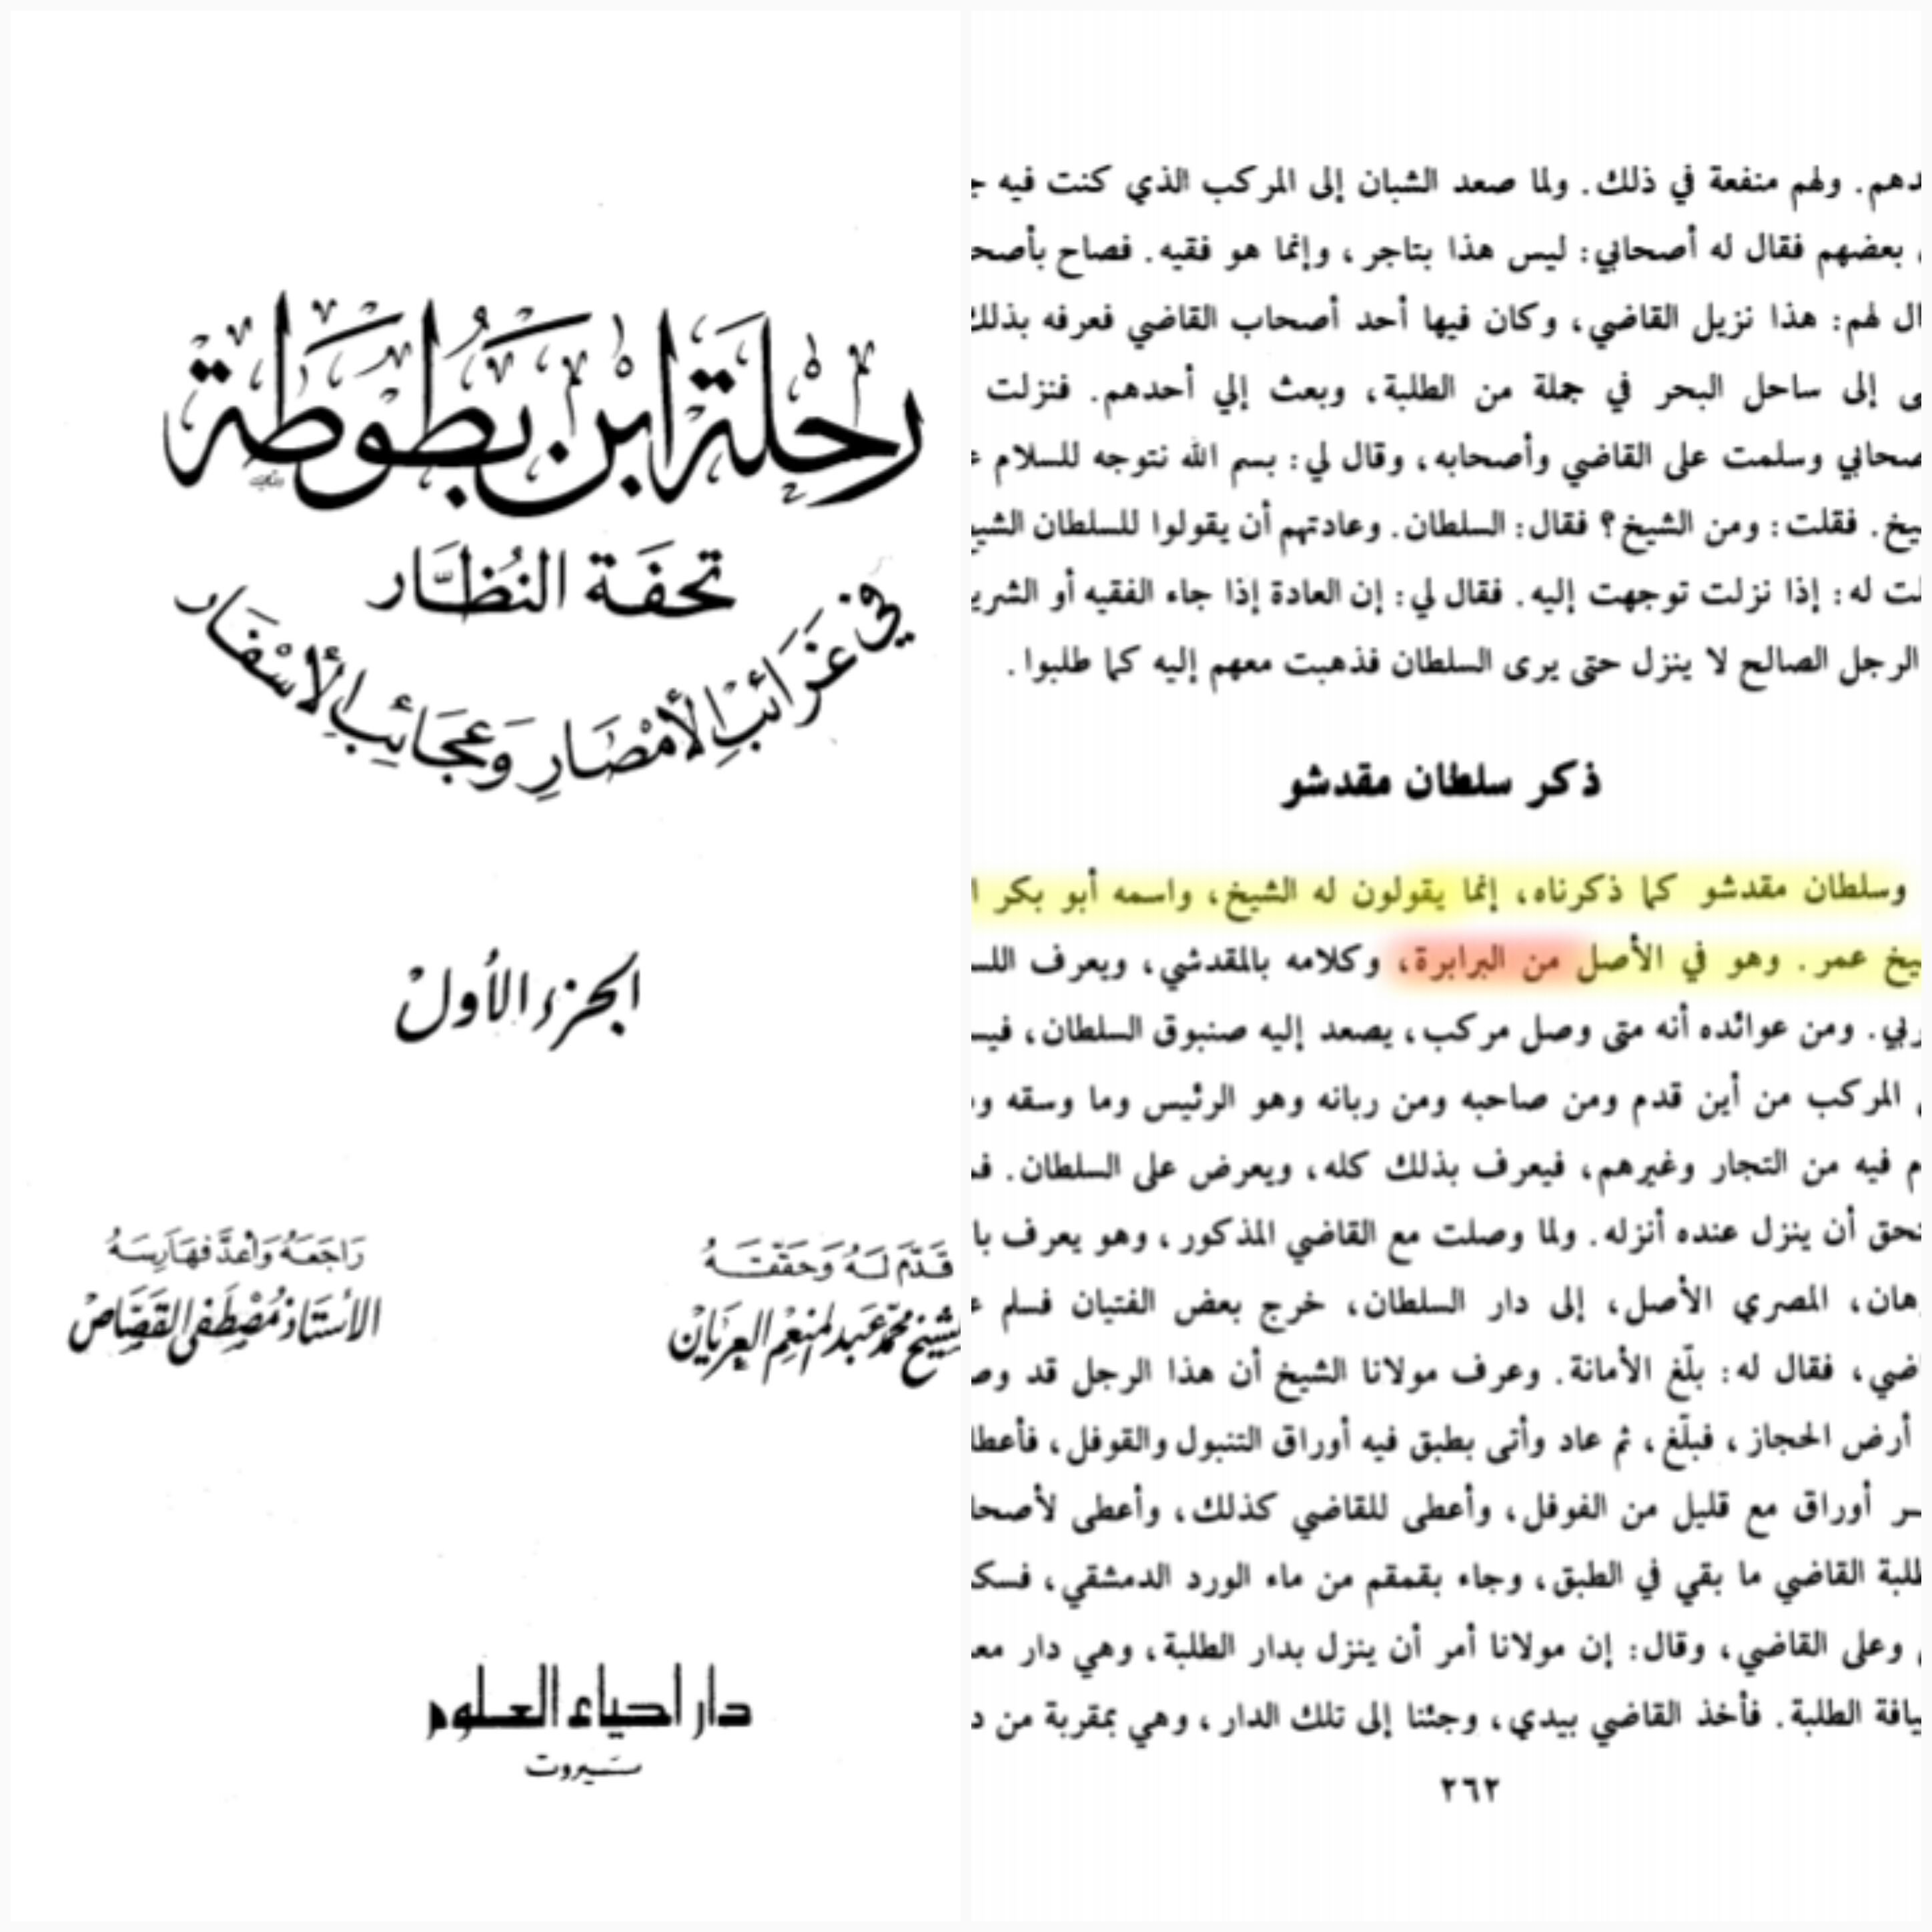 رحلة ابن بطوطة
تحفة النظار
في غرائب الأمصار وعجائب الأسفار
الجزء الأول
قدم له وحققه
الشيخ محمد عبد المنعم العريان
راجعه وأعد فهارسه
الأستاذ مصطفى القصاص
دار احياء العلوم
بيروت
دهم. ولهم منفعة في ذلك. ولما صعد الشبان إلى المركب الذي كنت فيه
بعضهم فقال له أصحابي: ليس هذا بتاجر، وإنما هو فقيه. فصاح بأصح
ال لهم: هذا نزيل القاضي، وكان فيها أحد أصحاب القاضي فعرفه بذلك
ى إلى ساحل البحر في جملة من الطلبة، وبعث إلي أحدهم. فنزلت
صحابي وسلمت على القاضي وأصحابه، وقال لي: بسم الله نتوجه للسلام
يخ. فقلت: ومن الشيخ؟ فقال: السلطان. وعادتهم أن يقولوا للسلطان الشي
لت له: إذا نزلت توجهت إليه. فقال لي: إن العادة إذا جاء الفقيه أو الشري
الرجل الصالح لا ينزل حتى يرى السلطان فذهبت معهم إليه كما طلبوا.
ذكر سلطان مقدشو
وسلطان مقدشو كما ذكرناه، إنما يقولون له الشيخ، واسمه أبو بكر ا
يخ عمر. وهو في الأصل من البرابرة، وكلامه بالمقدشي، ويعرف اللس
ربي. ومن عوائده أنه متى وصل مركب، يصعد إليه صنبوق السلطان، فيس
المركب من أين قدم ومن صاحبه ومن ربانه وهو الرئيس وما وسقه و
م فيه من التجار وغيرهم، فيعرف بذلك كله، ويعرض على السلطان. ف
تحق أن ينزل عنده أنزله. ولما وصلت مع القاضي المذكور، وهو يعرف با
هان، المصري الأصل، إلى دار السلطان، خرج بعض الفتيان فسلم
اضي، فقال له: بلّغ الأمانة. وعرف مولانا الشيخ أن هذا الرجل قد وص
أرض الحجاز، فبلّغ، ثم عاد وأتى بطبق فيه أوراق التنبول والقوفل، فأعطا
ـر أوراق مع قليل من الفوفل، وأعطى للقاضي كذلك، وأعطى لأصحا
طلبة القاضي ما بقي في الطبق، وجاء بقمقم من ماء الورد الدمشقي، فسك
وعلى القاضي، وقال: إن مولانا أمر أن ينزل بدار الطلبة، وهي دار مع
يافة الطلبة. فأخذ القاضي بيدي، وجئنا إلى تلك الدار، وهي بمقربة من د
٢٦٢